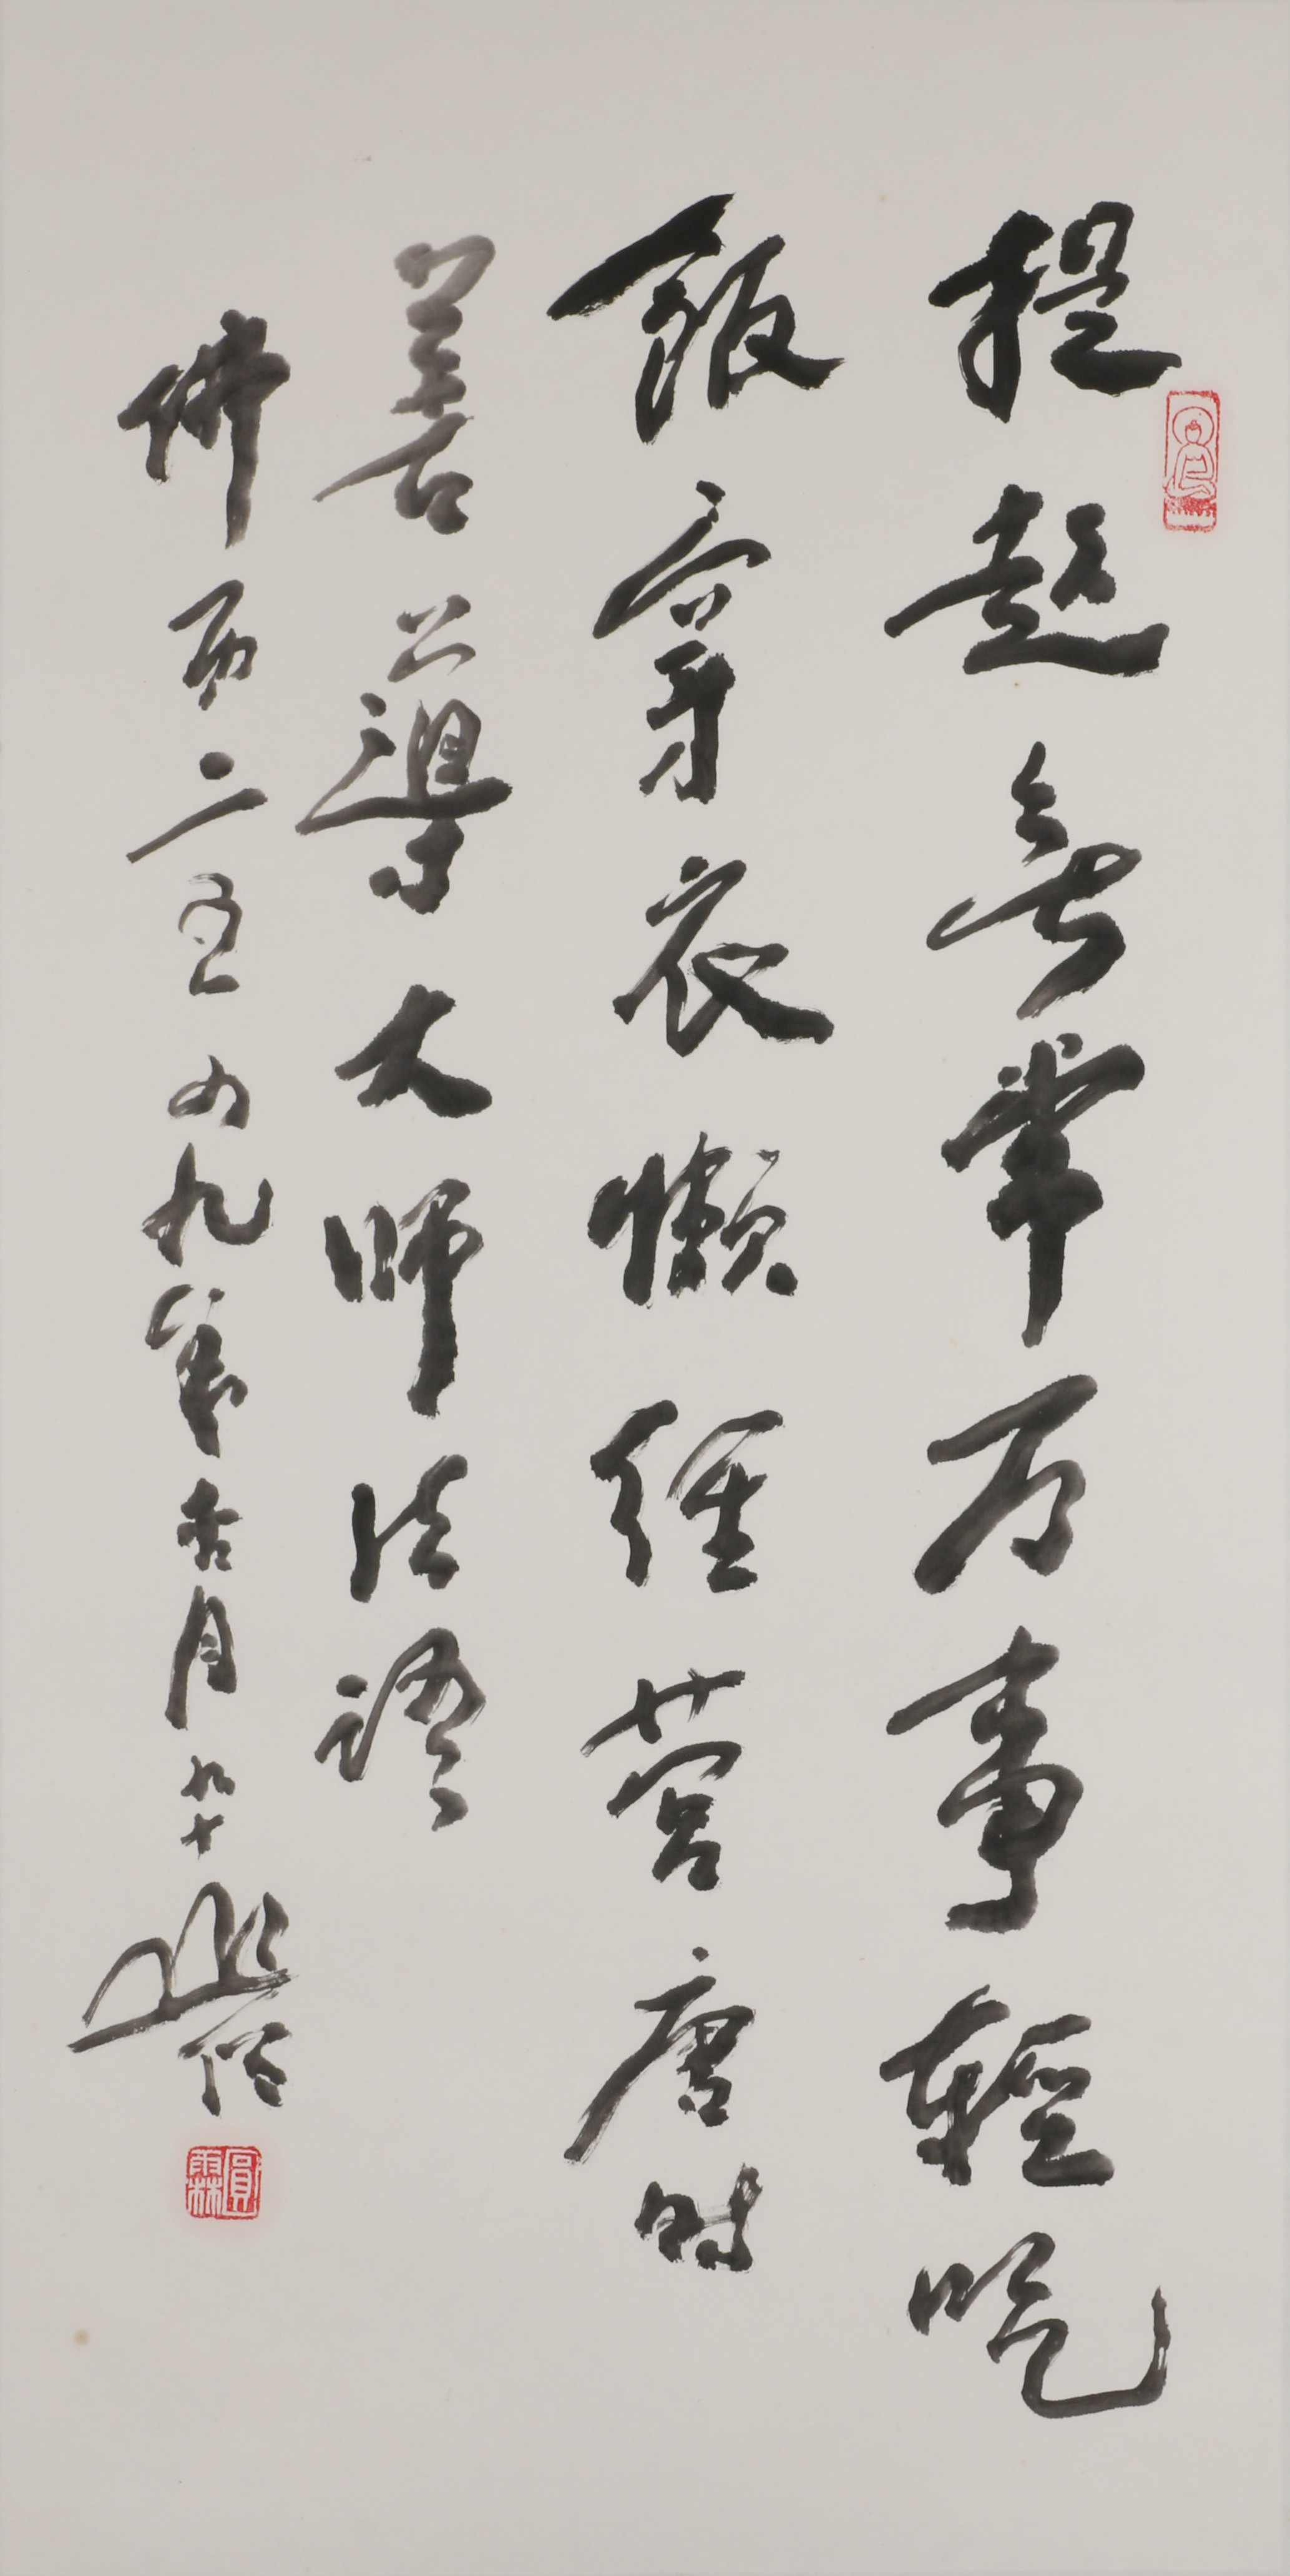 提起無常百事輕吃
飯穿衣懶經營唐時
善導大師法語
佛曆二五四九年杏月九十
圓霖